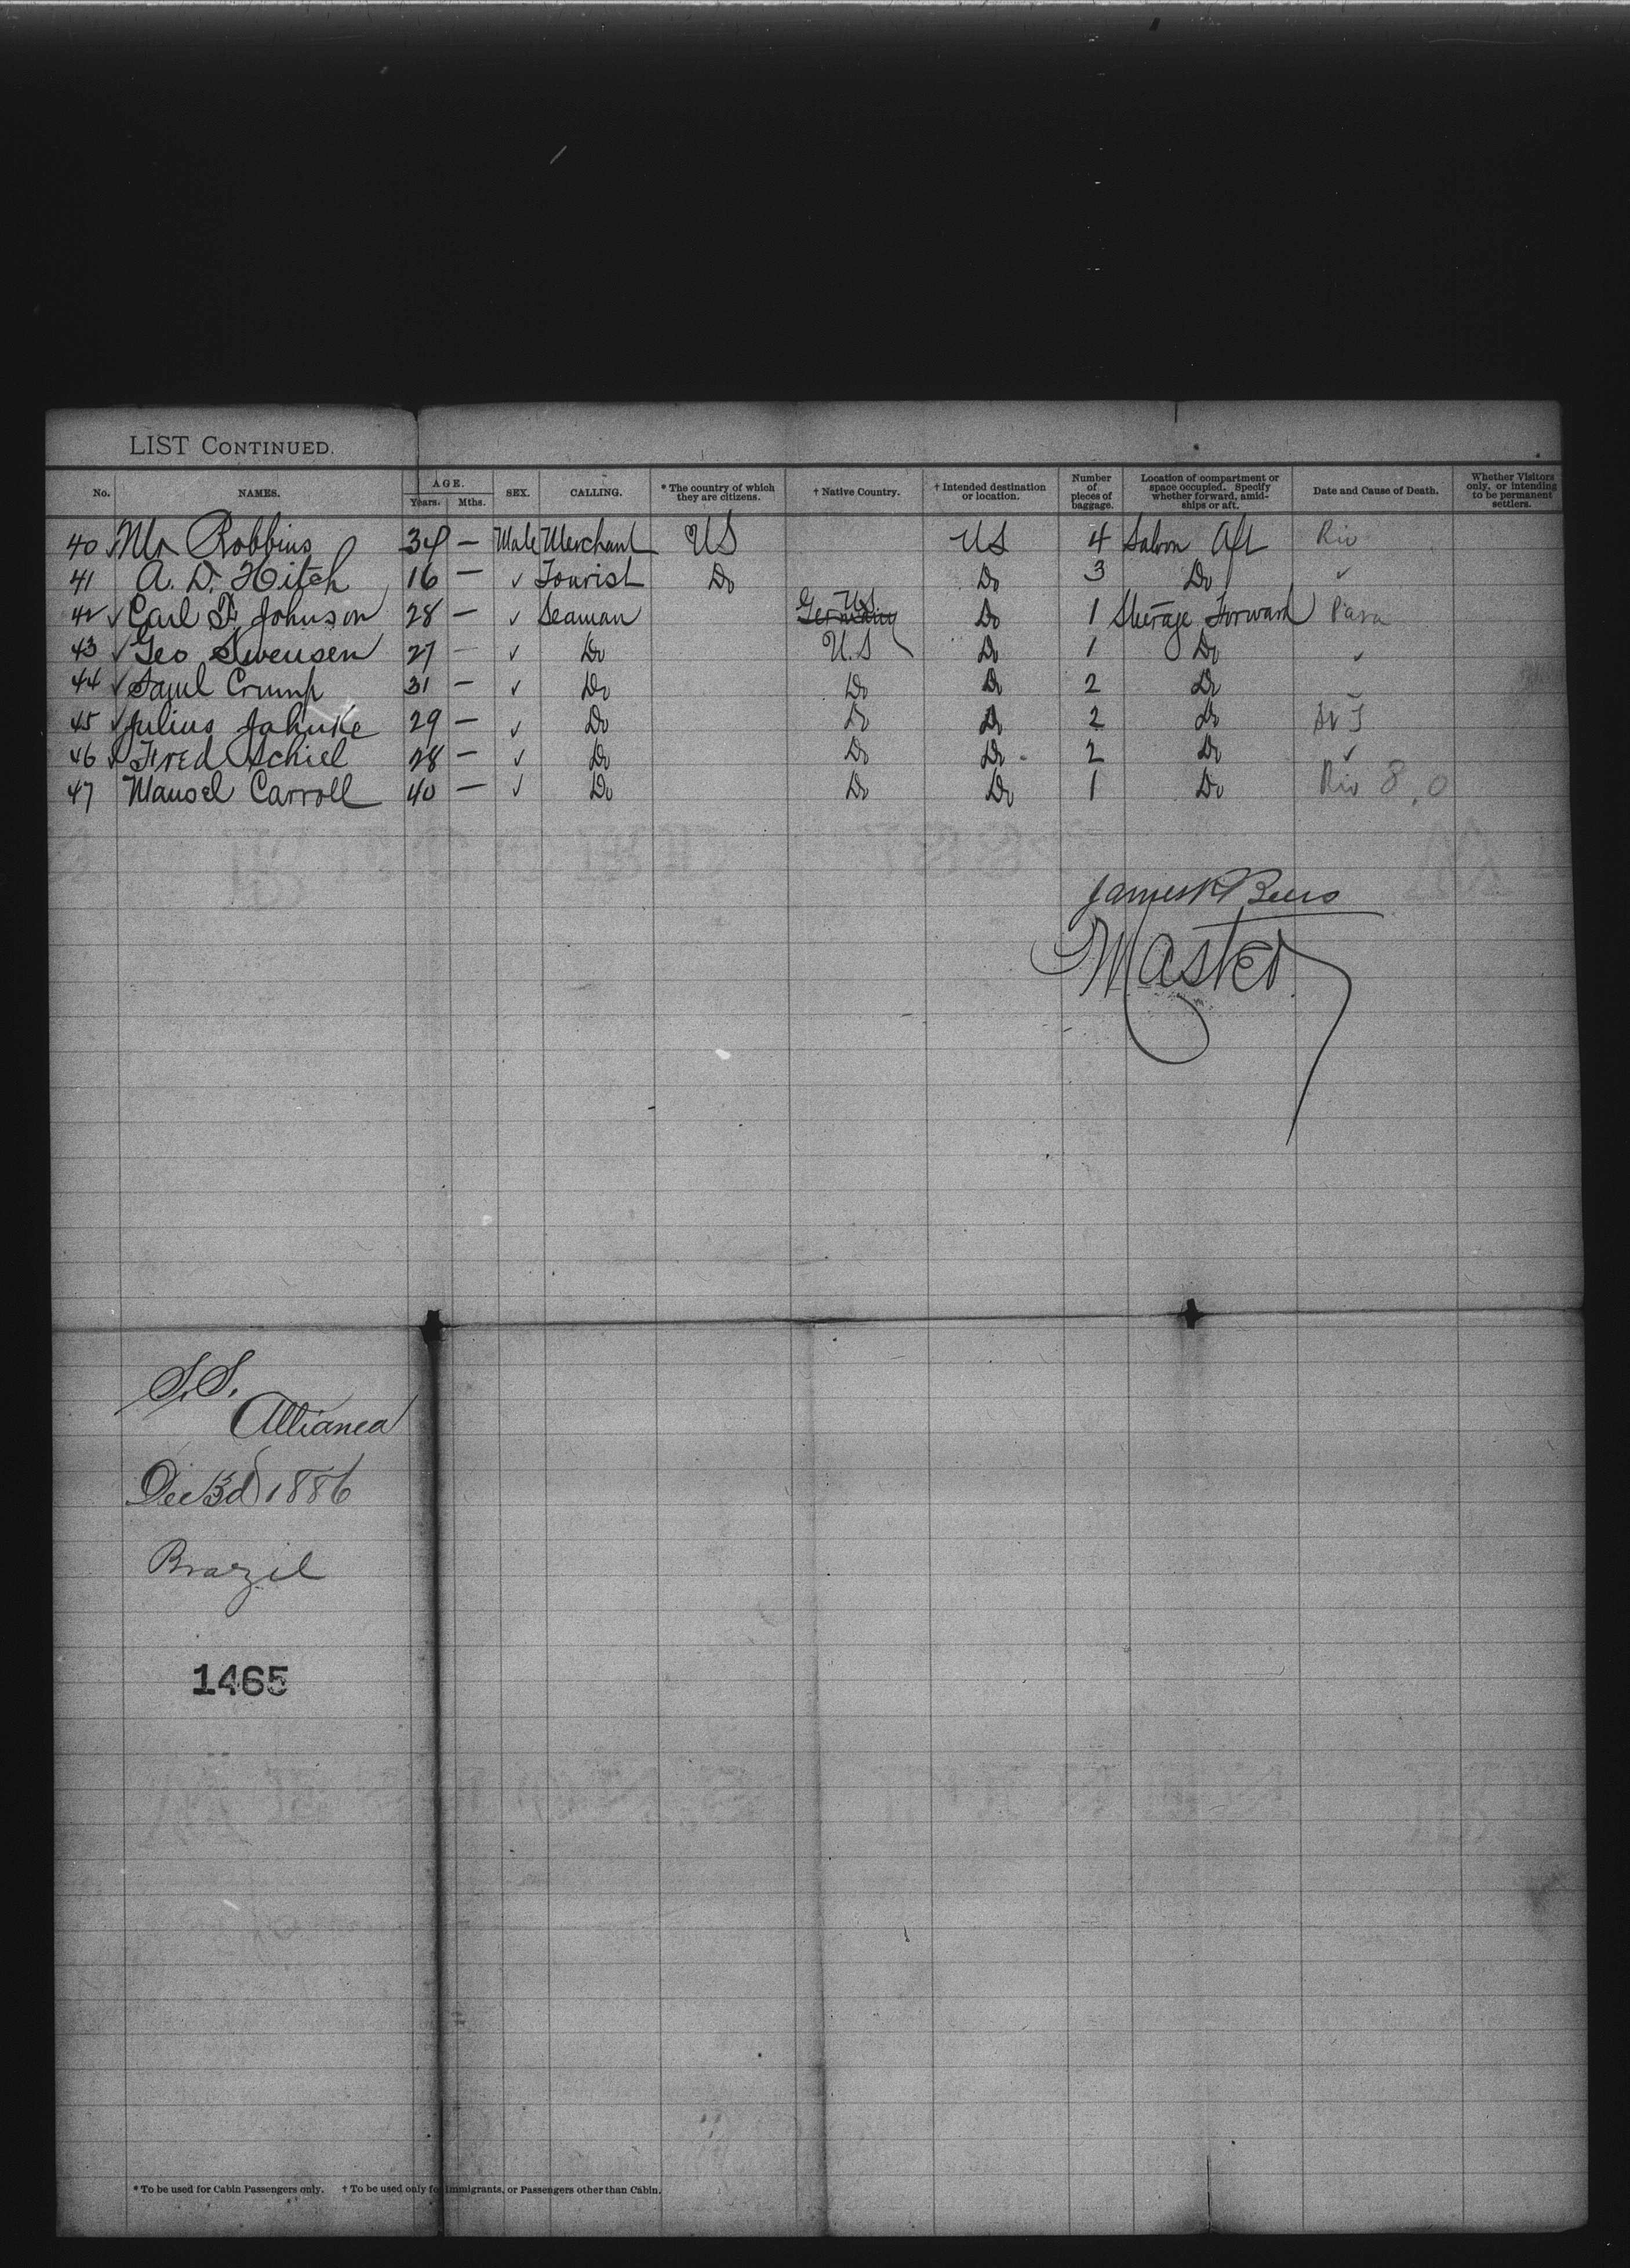 LIST CONTINUED.
No. NAMES. AGE. Years. Mths. SEX. CALLING. * The country of which they are citizens. † Native Country. † Intended destination or location. Number of pieces of baggage. Location of compartment or space occupied. Specify whether forward, amid-ships or aft. Date and Cause of Death. Whether Visitors only, or intending to be permanent settlers.
40 ✓ Mr Robbins 34 — Male Merchant US US 4 Saloon Aft Rio
41 A. D. Hitch 16 — ✓ Tourist Do Do 3 Do ✓
42 ✓ Carl F. Johnson 28 — ✓ Seaman Germany US Do 1 Steerage Forward Para
43 ✓ Geo Swensen 27 — ✓ Do U.S Do 1 Do ✓
44 ✓ Saml Crump 31 — ✓ Do Do Do 2 Do
45 ✓ Julius Jahnke 29 — ✓ Do Do Do 2 Do St T
46 ✓ Fred Schiel 28 — ✓ Do Do Do 2 Do ✓
47 Mansel Carroll 40 — ✓ Do Do Do 1 Do Rio 8.0
James R Beers
Master
S.S.
Allianca
Dec 3d 1886
Brazil
1465
* To be used for Cabin Passengers only. † To be used only for Immigrants, or Passengers other than Cabin.